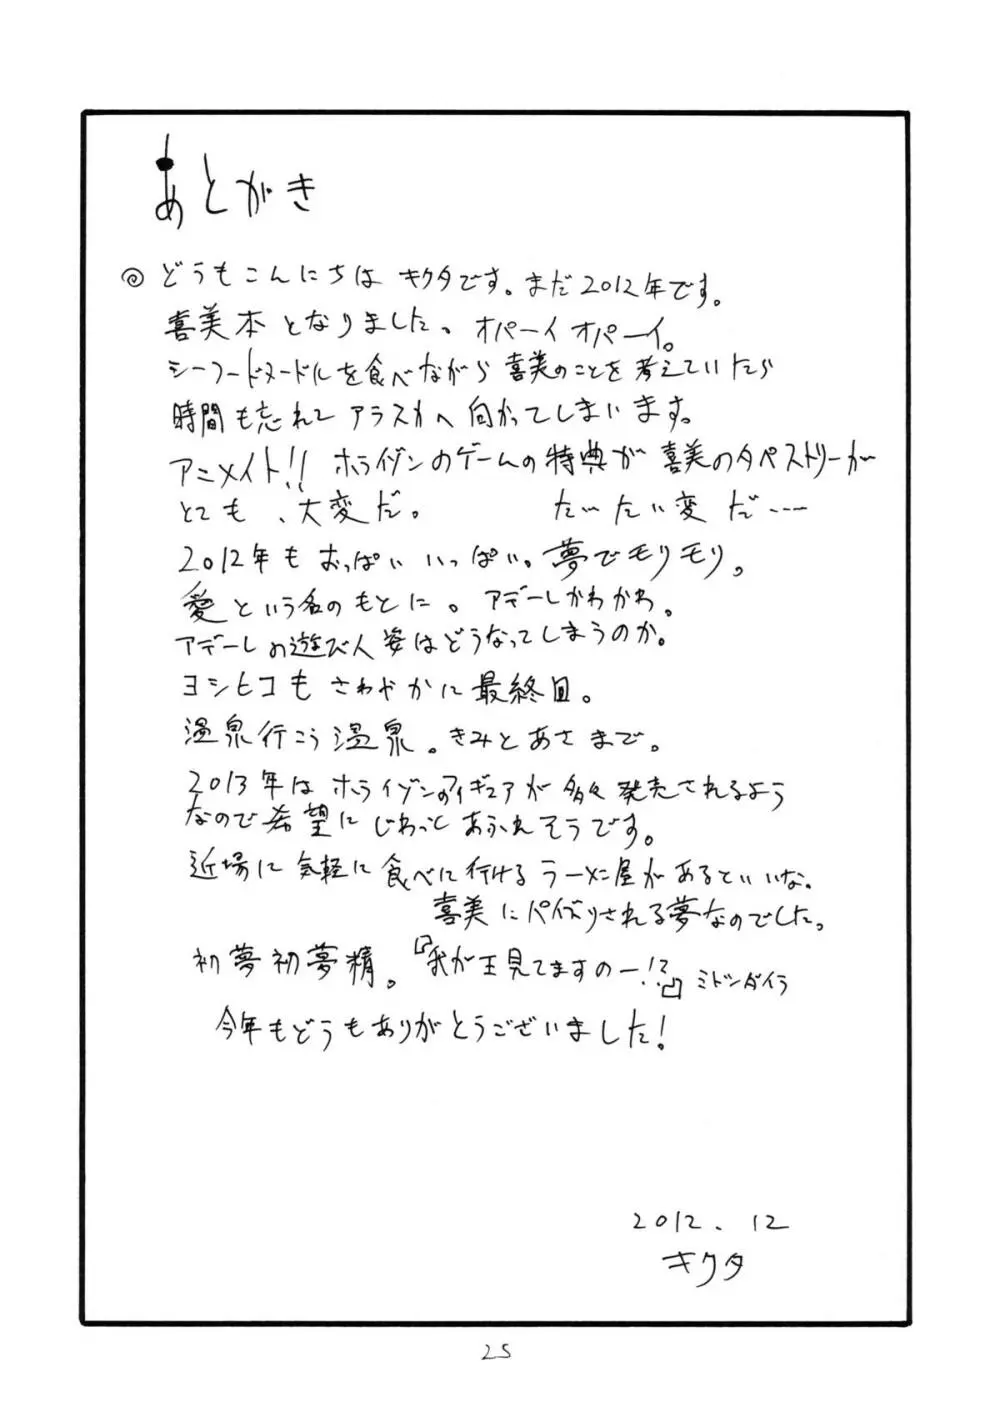 あとがき
◎どうもこんにちは キクタです。まだ2012年です。
喜美本となりました。オパーイオパーイ。
シーフードヌードルを食べながら喜美のことを考えていたら
時間も忘れて アラスカへ向かってしまいます。
アニメイト!! ホライゾンのゲームの特典が 喜美のタペストリーが
とても、大変だ。 たいたい変だ……
2012年もおっぱいいっぱい。夢でモリモリ。
愛という名のもとに。アデーレかわかわ。
アデーレの遊び人姿はどうなってしまうのか。
ヨシヒコもさわやかに最終回。
温泉行こう温泉。きみとあさまで。
2013年はホライゾンのフィギュアが多々発売されるよう
なので希望にじわっとあふれそうです。
近場に気軽に食べに行けるラーメン屋があるといいな。
喜美にパイズリされる夢なのでした。
初夢初夢精。『我が王見てますのー!?』ミトツダイラ
今年もどうもありがとうございました!
2012.12
キクタ
25